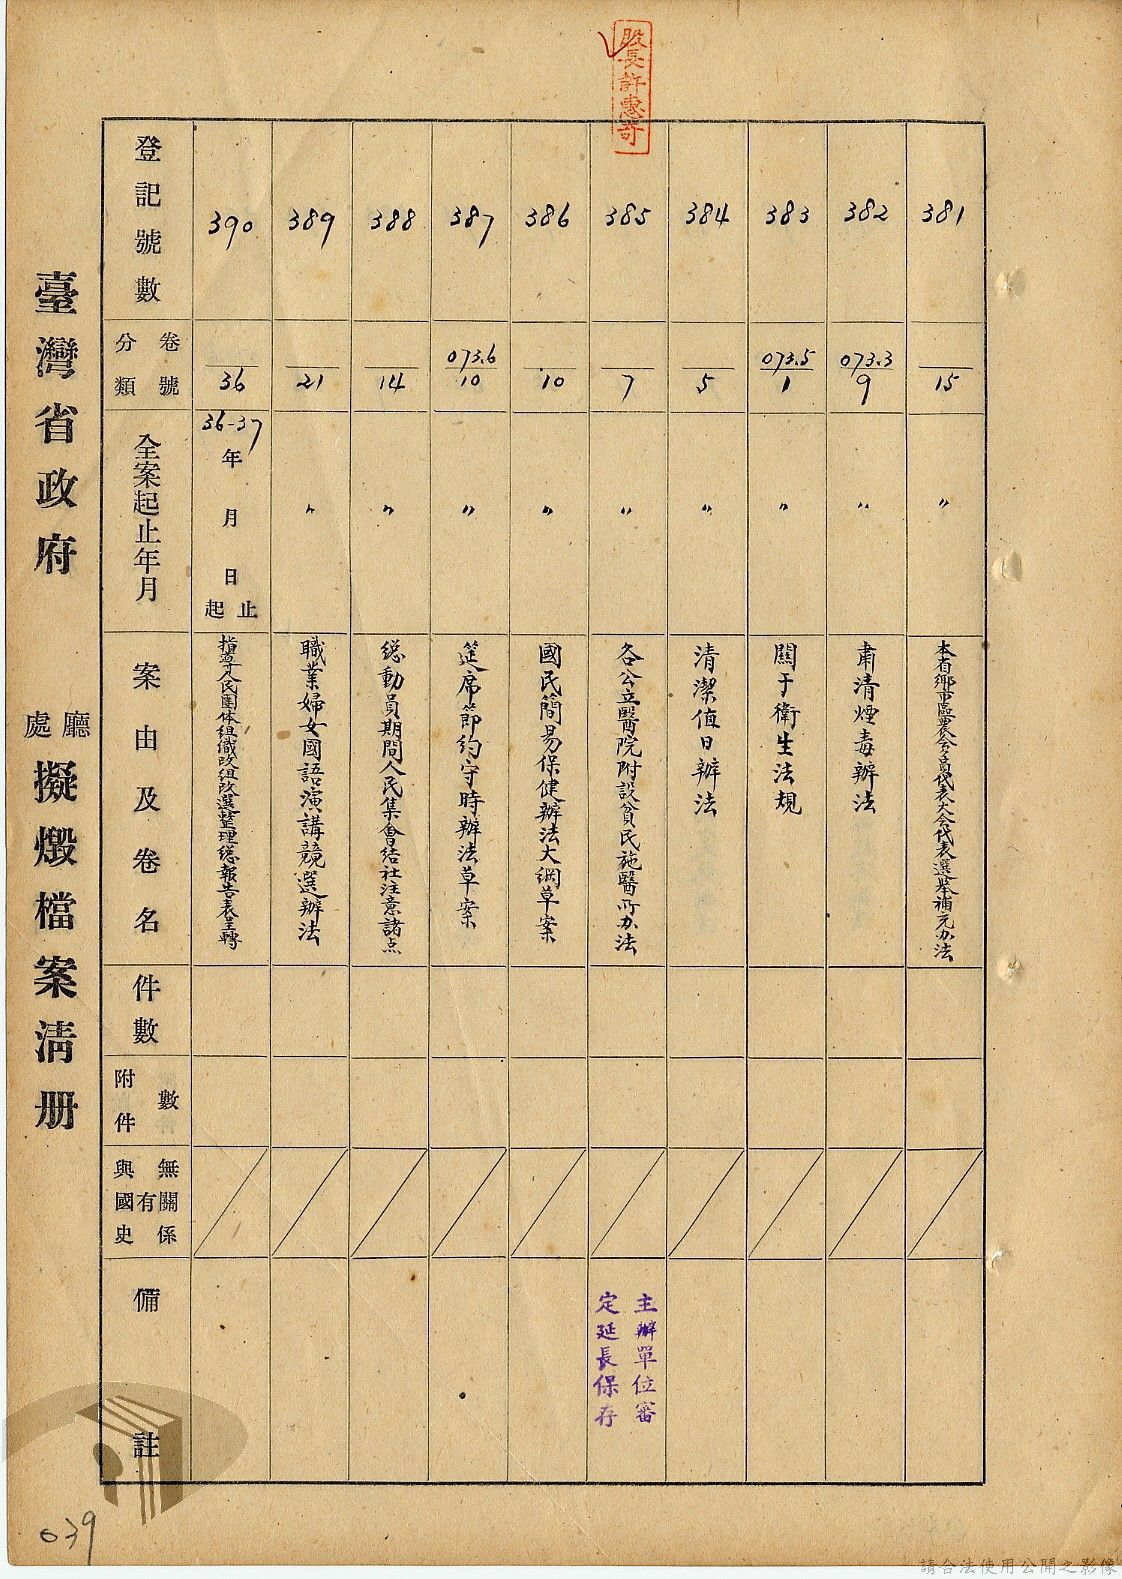 股長許惠奇
臺灣省政府
廳
處
擬燬檔案清册
登記號數
卷號
分類
全案起止年月
案由及卷名
件數
附件
數
與國史
有
無關係
備註
381
15
〃
本省鄉市區農会會員代表大会代表選举補充办法
382
073.3
9
〃
肅清煙毒辦法
383
073.5
1
〃
關于衛生法規
384
5
〃
清潔值日辦法
385
7
〃
各公立醫院附設貧民施醫所办法
主辦單位審
定延長保存
386
10
〃
國民簡易保健辦法大綱草案
387
073.6
10
〃
筵席節約守時辦法草案
388
14
〃
総動員期間人民集會结社注意諸点
389
21
〃
職業婦女國語演講競選辦法
390
36
36-37
年
月
日
止
起
指导人民團体組織改組改選整理総報告表呈轉
039
請合法使用公開之影像